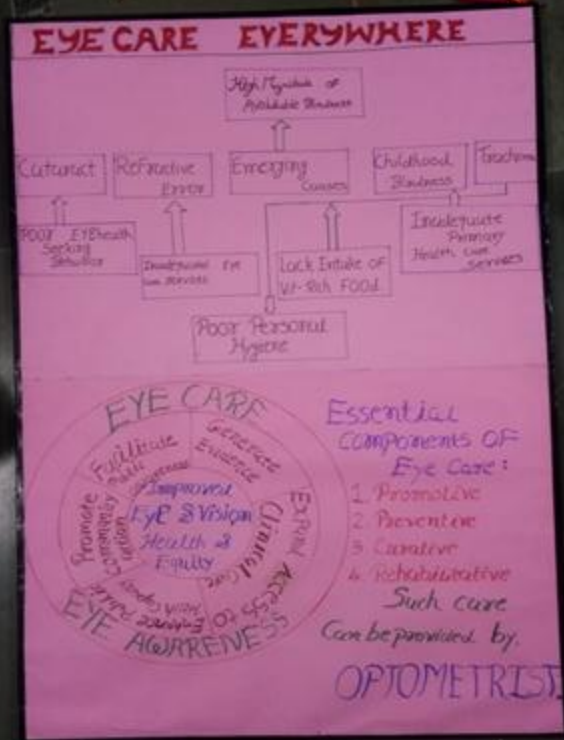 EYE CARE EVERYWHERE
High Magnitude of
Avoidable Blindness
Cataract
Refractive
Error
Emerging
Causes
Childhood
Blindness
Trachoma
Poor EYE health
Seeking
Behaviour
Inadequate Eye
care services
Lack Intake of
Vit-Rich FOOD
Inadequate
Primary
Health care
services
Poor Personal
Hygiene
EYE CARE
Facilitate
Public
Awareness
Generate
Evidence
Expand Access to
Clinical Care
Enhance Public
Health Capacity
Promote
Community
Action
Improved
EyE & Vision
Health &
Equity
EYE AWARENESS
Essential
components OF
Eye Care :
1. Promotive
2. Preventive
3. Curative
4. Rehabilitative
Such care
Can be provided by.
OPTOMETRIST